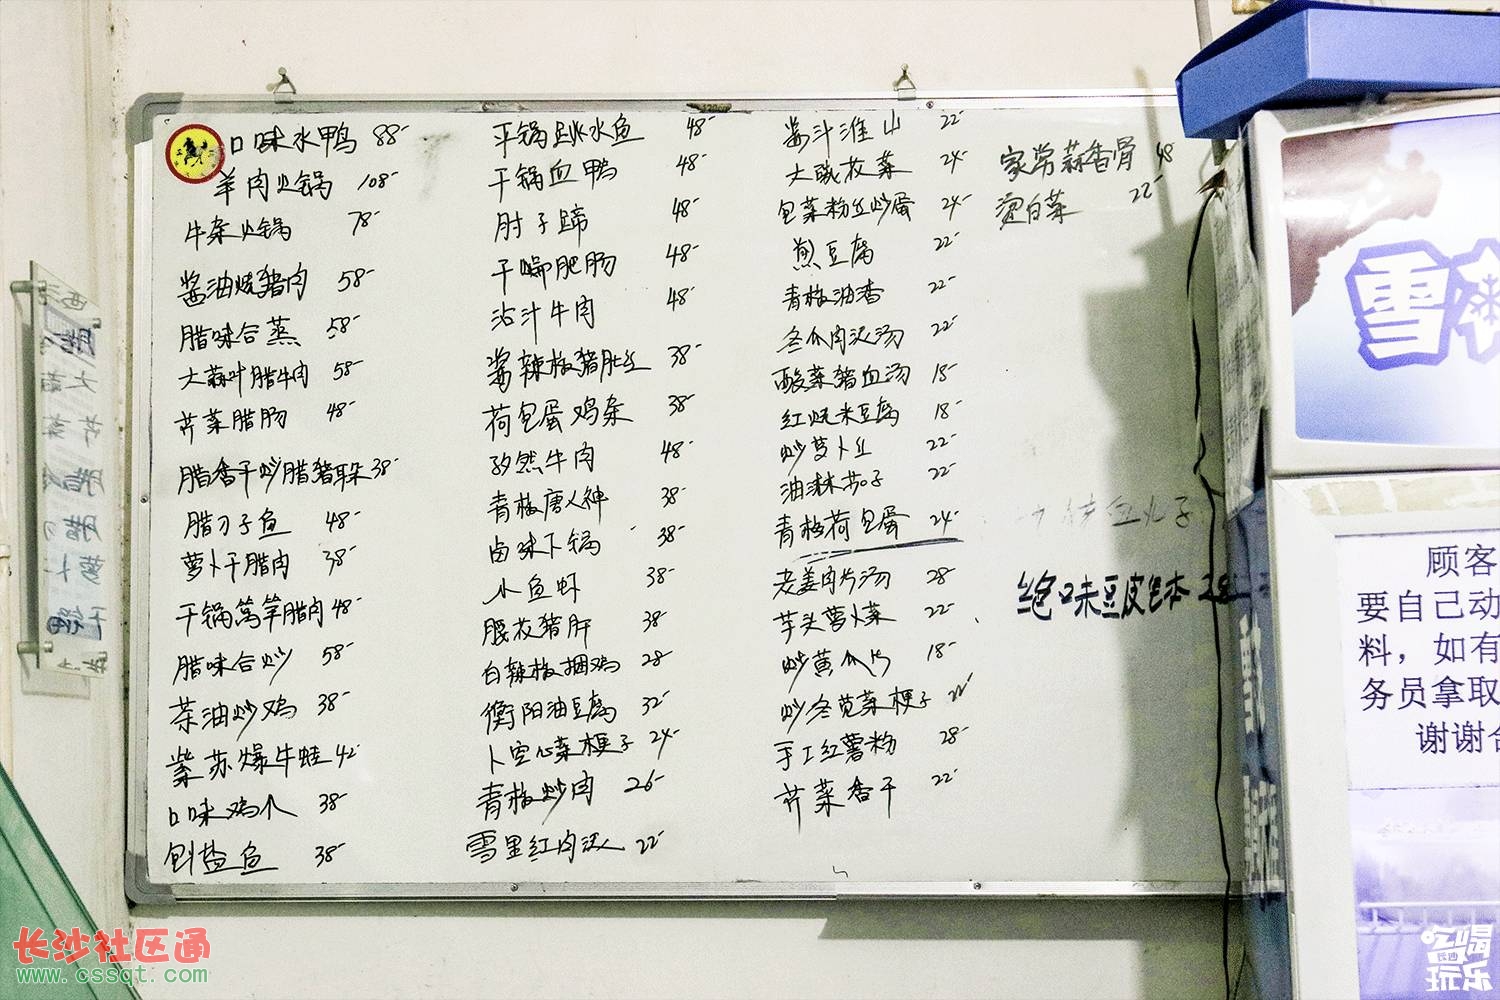 口味水鸭 88-
羊肉火锅 108-
牛杂火锅 78-
酱油烧猪肉 58-
腊味合蒸 58-
大蒜叶腊牛肉 58-
芹菜腊肠 48-
腊香干炒腊猪耳朵 38-
腊刁子鱼 48-
萝卜干腊肉 38-
干锅笋腊肉 48-
腊味合炒 58-
茶油炒鸡 38-
紫苏爆牛蛙 42-
口味鸡爪 38-
刨盐鱼 38-
干锅跳水鱼 48-
干锅血鸭 48-
肘子蹄 48-
干煸肥肠 48-
沾汁牛肉 48-
酱辣椒猪肚丝 38-
荷包蛋鸡杂 38-
孜然牛肉 48-
青椒唐人神 38-
卤味下锅 38-
小鱼虾 38-
腰花猪肝 38-
白辣椒捆鸡 28-
衡阳油豆腐 32-
卜空心菜梗子 24-
青椒炒肉 26-
雪里红肉泥 22-
酱汁淮山 22-
大碗花菜 24-
包菜粉丝炒蛋 24-
煎豆腐 22-
青椒油渣 22-
冬瓜肉泥汤 22-
酸菜猪血汤 18-
红烧米豆腐 18-
炒萝卜丝 22-
油淋茄子 22-
青椒荷包蛋 24-
老姜肉片汤 28-
芋头萝卜菜 22-
炒黄瓜片 18-
炒冬苋菜梗子 22-
手工红薯粉 28-
芹菜香干 22-
家常蒜香骨 48
烫白菜 22-
绝味豆皮 28
雪
顾客
要自己动
料，如有
务员拿取
谢谢合
长沙社区通
www.cssqt.com
吃喝
长沙
玩乐